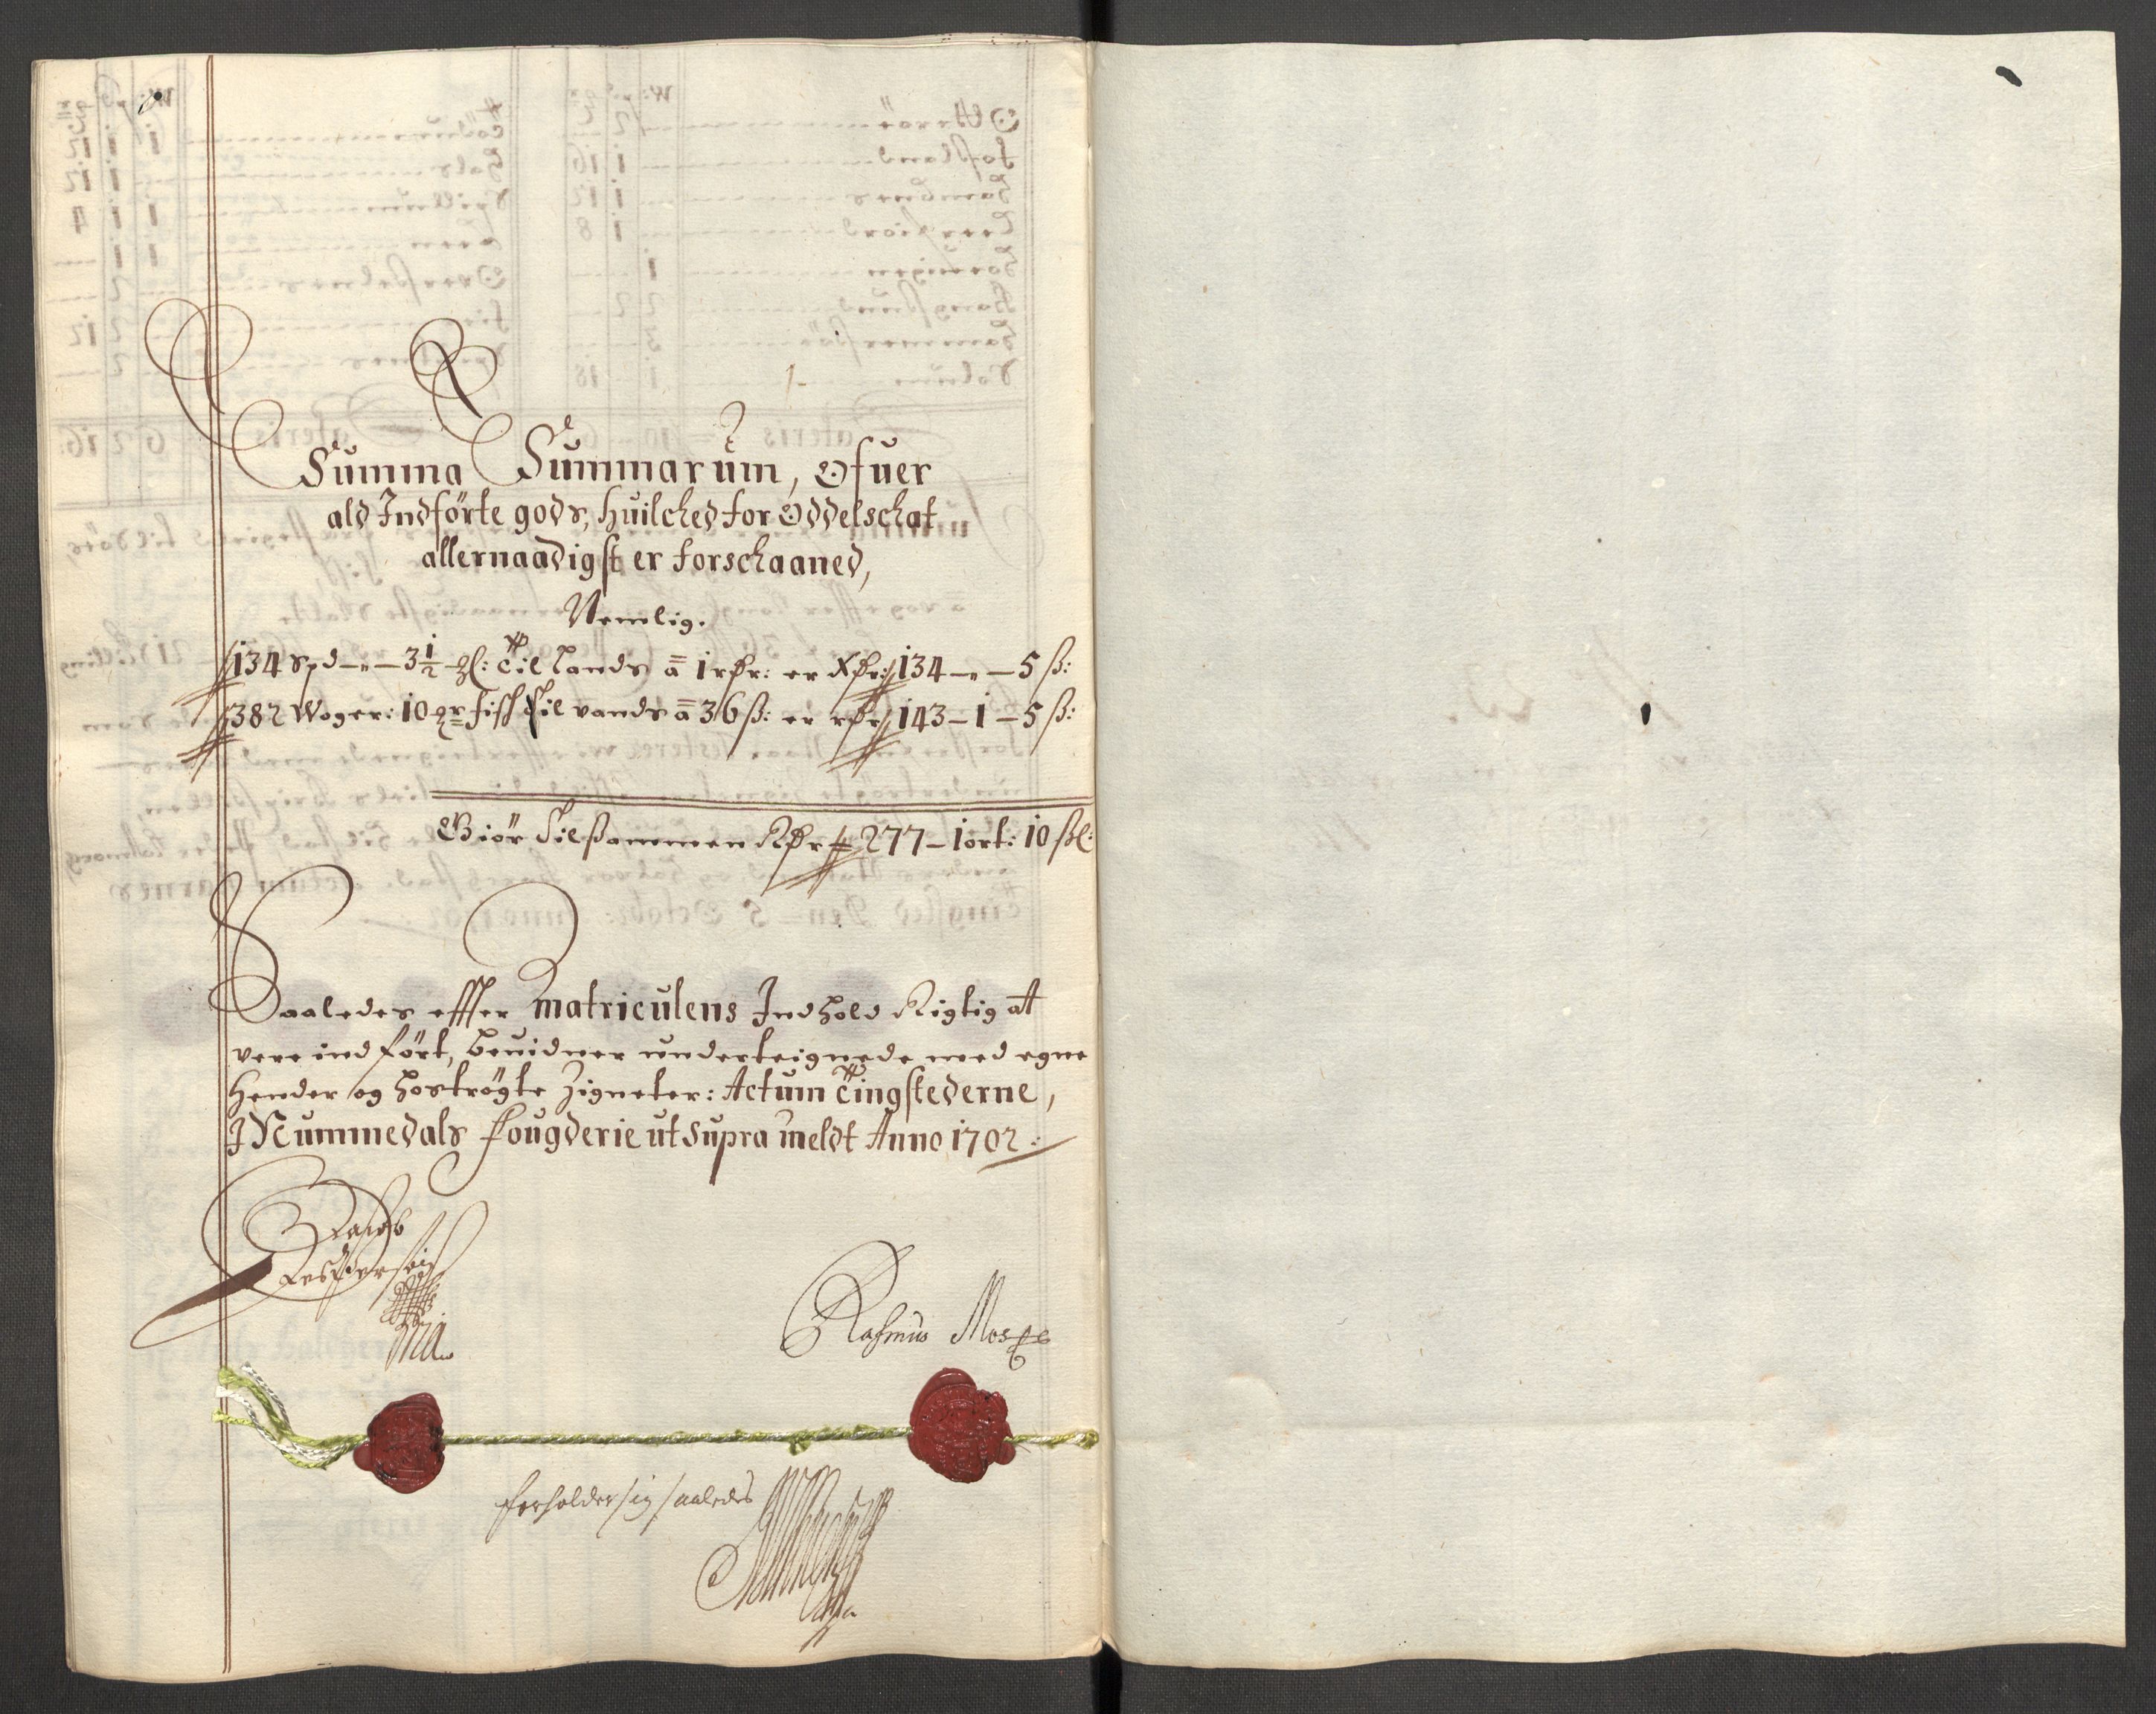 Summa Summarum, Ofuer
ald Indförte gods, huilched for Oddelschat
allernaadigst er forschaaned,
Nemlig.
134 Spd – „ – 3 1/2 ℳl: Til Lands ā 1 rdr: er Rdr: 134 – „ – 5 ß:
382 Woger: 10 ℳr fisk Til vands ā 36 ß: er rdr 143 – 1 – 5 ß:
Giör Tilsammen Rdr 277 – 1 ort: 10 ßl:
Saaledes effter Matriculens Indhold Rigtig att
vere ind fört, beuidner underteignede med egne
Hender og hoströgte Zigneter: Actum Tingstederne,
I Nummedals fougderie ut supra meldt Anno 1702:
Rasmus
forholder sig saaledes